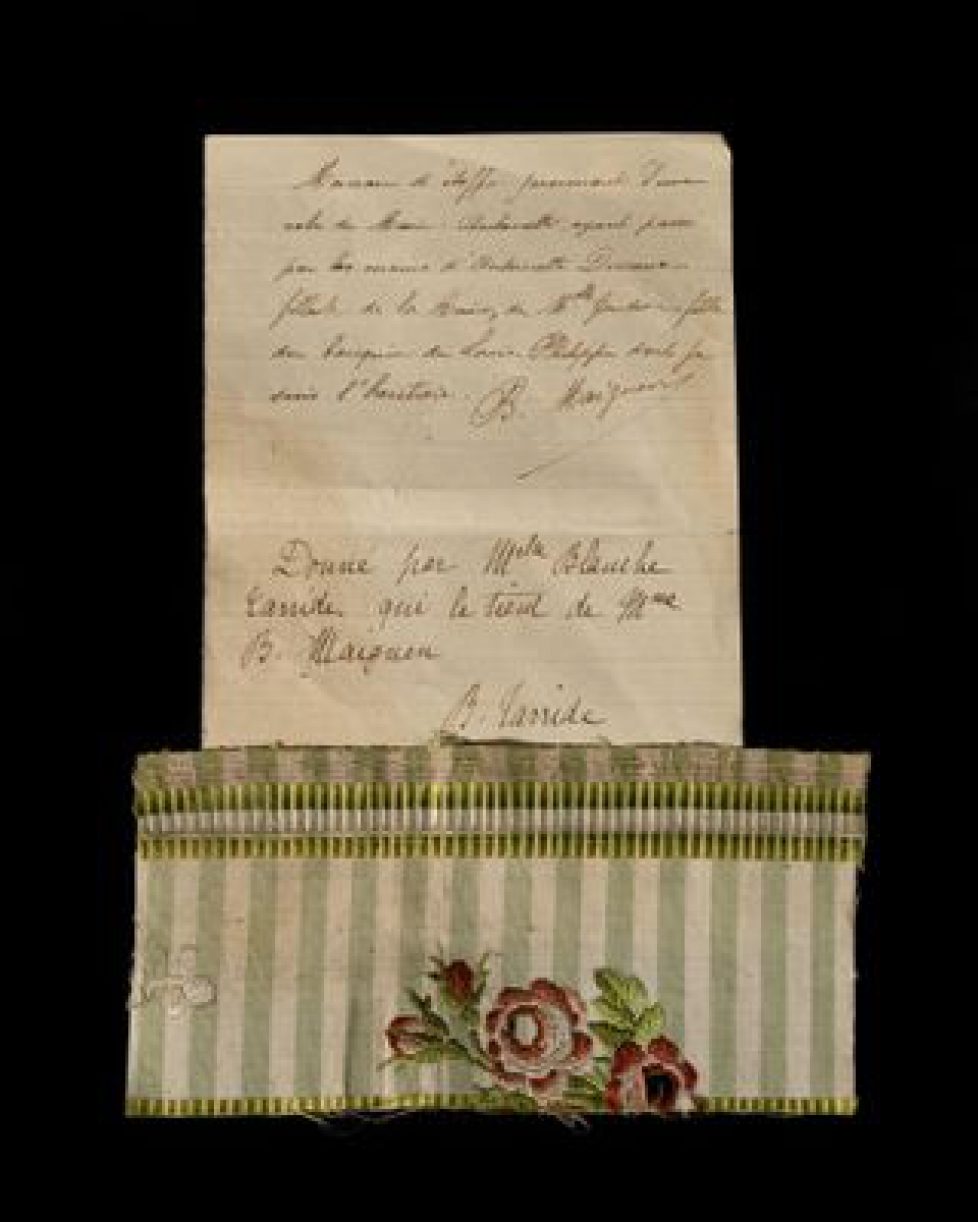 Morceau d'étoffe provenant d'une
robe de Marie Antoinette ayant passé
par les mains d'Antoinette
filleule de la Reine, de Mlle fille
du banquier de Louis Philippe dont je
suis l'héritière. B. Maiguen
Donné par Melle Blanche
Tarride. qui le tient de Mme
B. Maiguen
B. Tarride